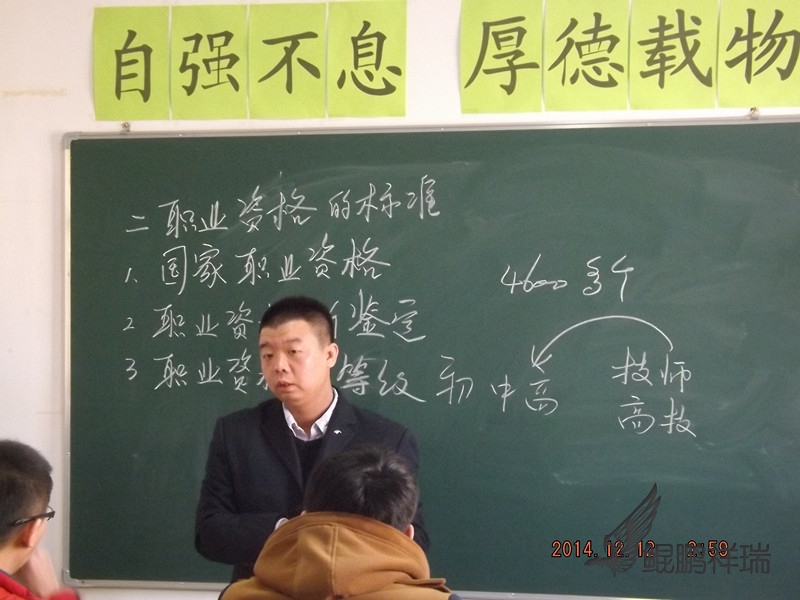 自强不息 厚德载物
二 职业资格的标准
1. 国家职业资格
4600多个
2 职业资 鉴定
3 职业资 等级 初 中 高 技师
高技
2014.12.12 :59
鲲鹏祥瑞